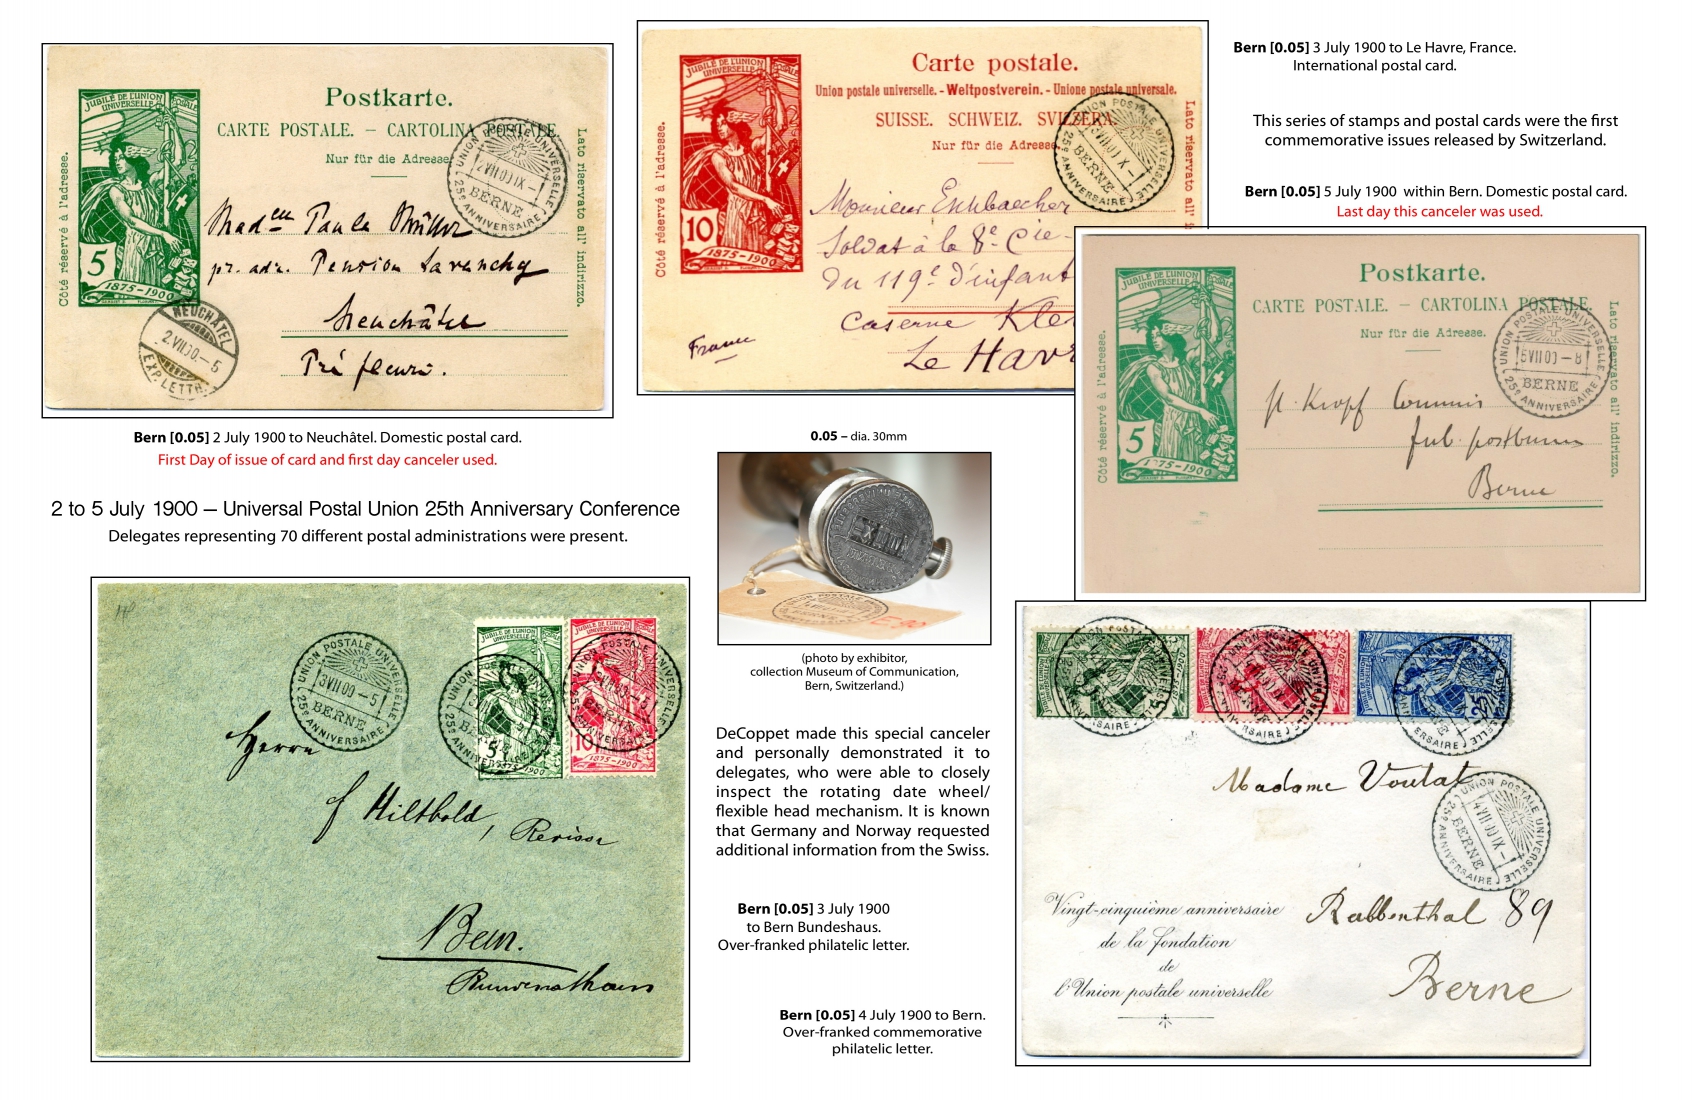 JUBILÉ DE L'UNION
UNIVERSELLE POSTALE
Postkarte.
CARTE POSTALE. – CARTOLINA POSTALE.
Nur für die Adresse
Côté réservé à l'adresse.
Lato riservato all' indirizzo.
UNION POSTALE UNIVERSELLE
2 VII 00 IX –
BERNE
25e ANNIVERSAIRE
Paula Müller
pr. adr. Pension Lavanchy
Neuchâtel
Pré fleuri.
5
1875–1900
NEUCHÂTEL
2.VII.00–5
EXP. LETTR.
Bern [0.05] 2 July 1900 to Neuchâtel. Domestic postal card.
First Day of issue of card and first day canceler used.
JUBILÉ DE L'UNION
UNIVERSELLE POSTALE
Carte postale.
Union postale universelle. - Weltpostverein. - Unione postale universale.
SUISSE. SCHWEIZ. SVIZZERA.
Nur für die Adresse
Côté réservé à l'adresse.
Lato riservato all'
UNION POSTALE UNIVERSELLE
BERNE
25e ANNIVERSAIRE
Monsieur
Soldat à la 8e Cie
du 119e d'infant
Caserne Kle
Le Havr
France
10
1875–1900
Bern [0.05] 3 July 1900 to Le Havre, France.
International postal card.
This series of stamps and postal cards were the first
commemorative issues released by Switzerland.
Bern [0.05] 5 July 1900 within Bern. Domestic postal card.
Last day this canceler was used.
JUBILÉ DE L'UNION
UNIVERSELLE POSTALE
Postkarte.
CARTE POSTALE. – CARTOLINA POSTALE.
Nur für die Adresse.
Côté réservé à l'adresse.
Lato riservato all' indirizzo.
UNION POSTALE UNIVERSELLE
5 VII 00 – 8
BERNE
25e ANNIVERSAIRE
Kropf Commis
Berne
5
1875–1900
0.05 – dia. 30mm
(photo by exhibitor,
collection Museum of Communication,
Bern, Switzerland.)
2 to 5 July 1900 – Universal Postal Union 25th Anniversary Conference
Delegates representing 70 different postal administrations were present.
UNION POSTALE UNIVERSELLE
3 VII 00 – 5
BERNE
25e ANNIVERSAIRE
5
10
1875–1900
Herrn
Hiltbold,
Bern.
DeCoppet made this special canceler
and personally demonstrated it to
delegates, who were able to closely
inspect the rotating date wheel/
flexible head mechanism. It is known
that Germany and Norway requested
additional information from the Swiss.
Bern [0.05] 3 July 1900
to Bern Bundeshaus.
Over-franked philatelic letter.
Bern [0.05] 4 July 1900 to Bern.
Over-franked commemorative
philatelic letter.
25
Madame Voutat
UNION POSTALE UNIVERSELLE
4 VII 00 IX –
BERNE
25e ANNIVERSAIRE
Vingt-cinquième anniversaire
de la fondation
de
l'Union postale universelle
Rabbenthal 89
Berne